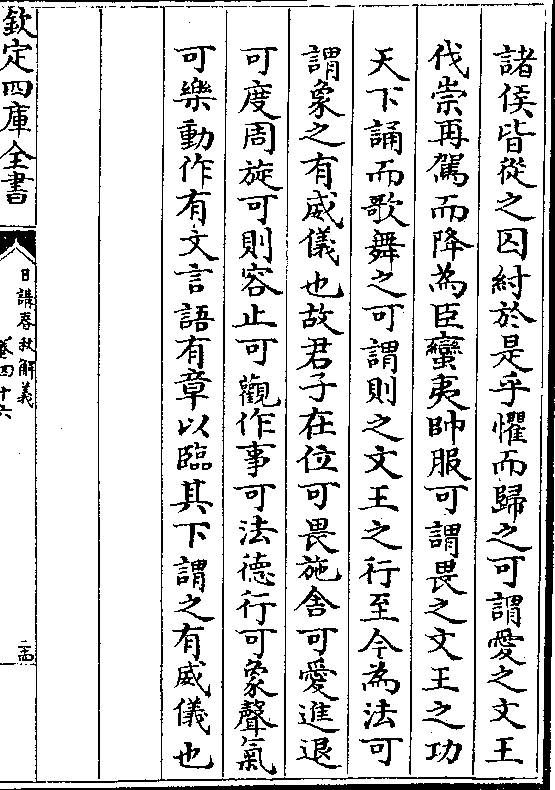 諸侯皆從之囚紂於是乎懼而歸之可謂愛之文王
伐崇再駕而降為臣蠻夷帥服可謂畏之文王之功
天下誦而歌舞之可謂則之文王之行至今為法可
謂象之有威儀也故君子在位可畏施舍可愛進退
可度周旋可則容止可觀作事可法德行可象聲氣
可樂動作有文言語有章以臨其下謂之有威儀也
欽定四庫全書
日講春秋解義
卷四十六